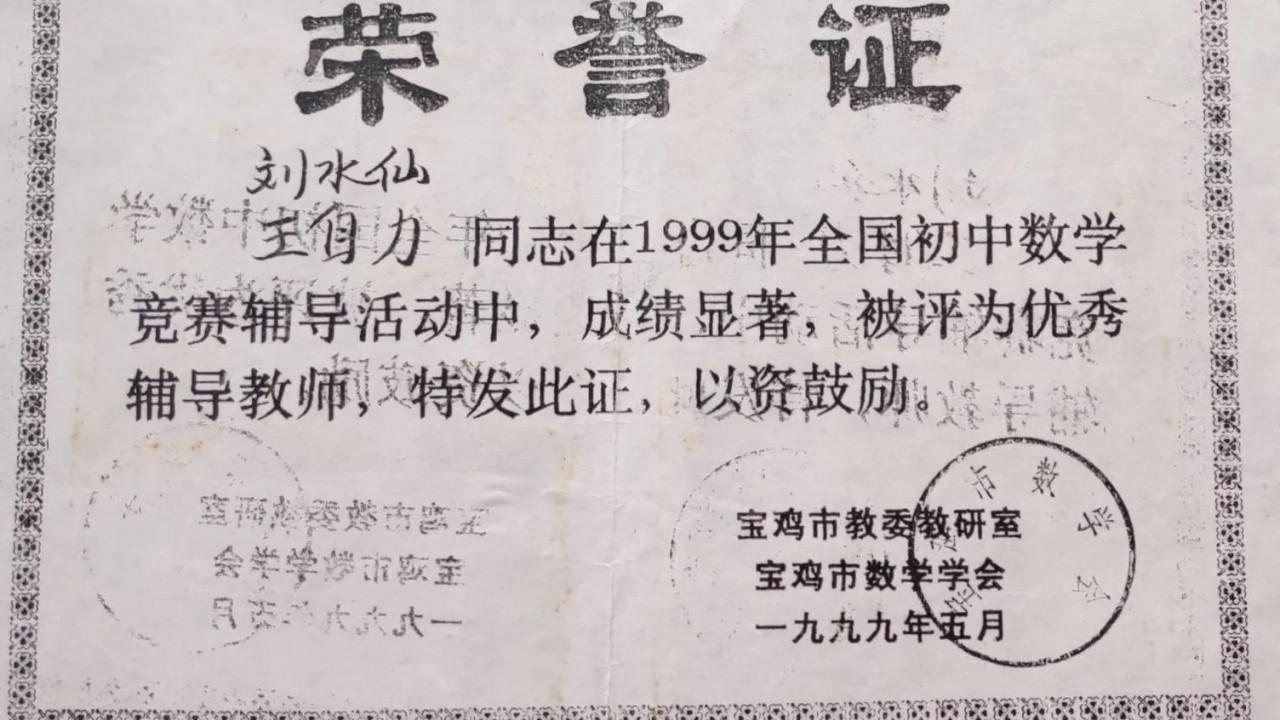 荣誉证
刘水仙
王自力 同志在1999年全国初中数学
竞赛辅导活动中，成绩显著，被评为优秀
辅导教师，特发此证，以资鼓励。
宝鸡市教委教研室
宝鸡市数学学会
一九九九年五月
宝鸡市数学会